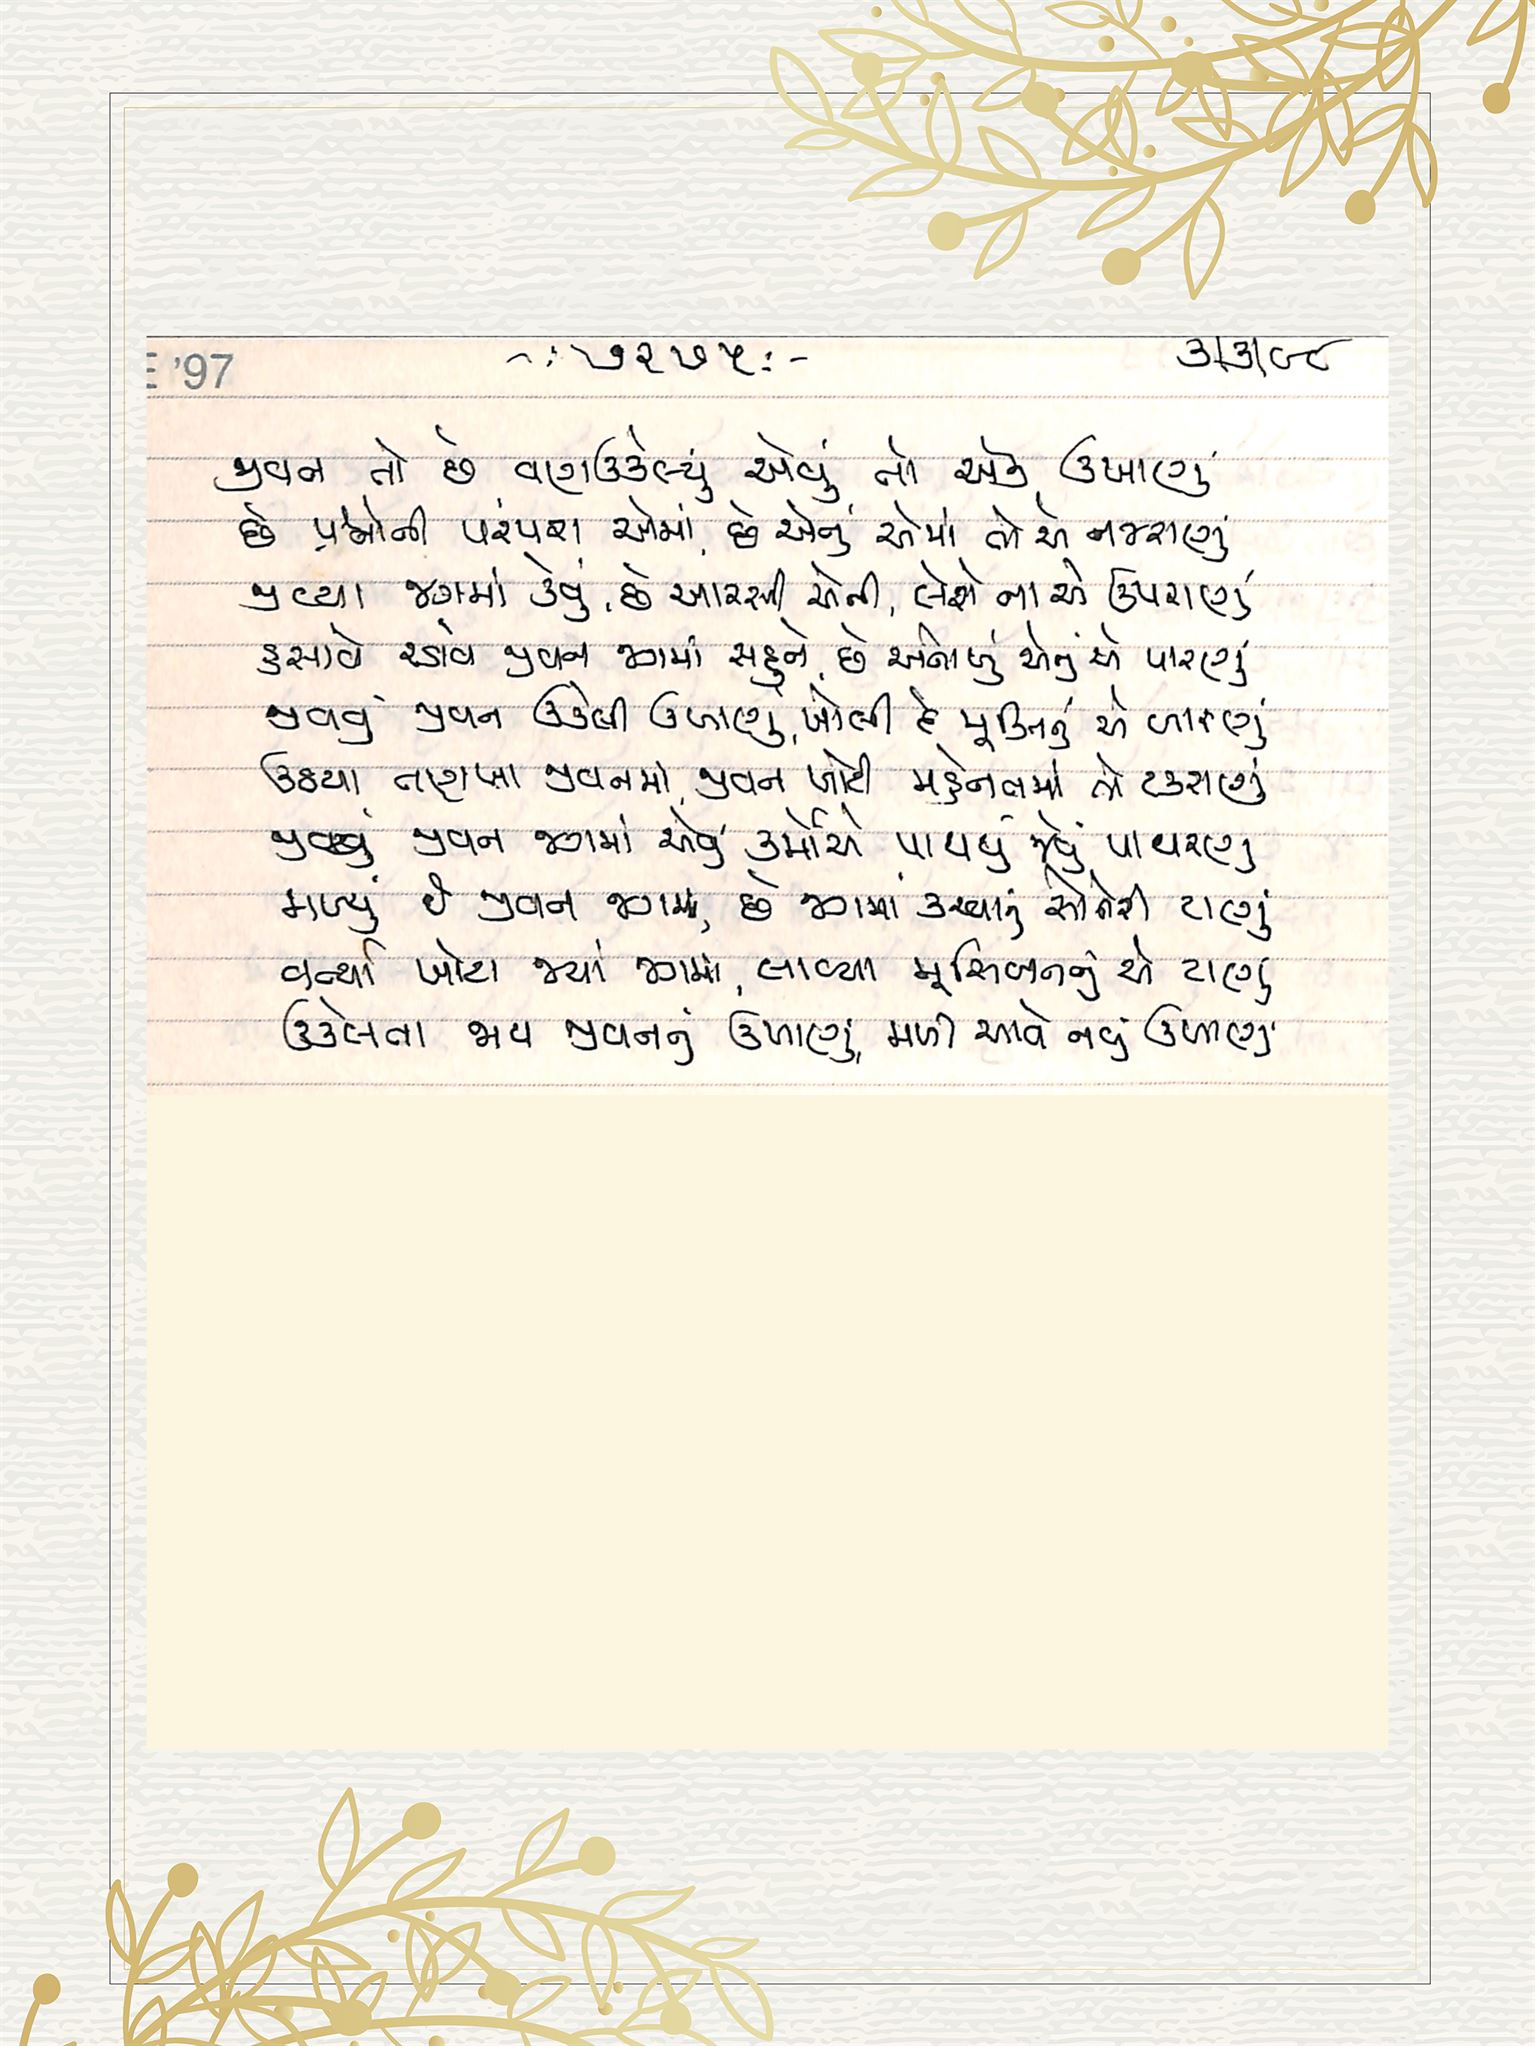 E '97
-: ૭૨૭૫ :-
૩/૩/૯૮
જીવન તો છે વણઉકેલ્યું એવું તો એક ઉખાણું
છે પ્રશ્નોની પરંપરા એમાં, છે એનું એમાં તો એ નજરાણું
જીવ્યા જગમાં કેવું, છે આરસી એની, લેશો ના એ ઉપરાણું
હસાવે રડાવે જીવન જગમાં સહુને, છે અનોખું એનું એ પારણું
જીવવું જીવન ઉકેલી ઉખાણું, ખોલી દે મુક્તિનું એ બારણું
ઉઠયા તણખા જીવનમાં, જીવન ખોટી મહેનતમાં તો ટકરાણું
જીવવું જીવન જગમાં એવું કર્મોએ પાથર્યું જેવું પાથરણું
મળ્યું છે જીવન જગમાં, છે જગમાં કરવાનું સોનેરી ટાણું
વર્ત્યા ખોટા જ્યાં જગમાં, લાવ્યા મુસીબતનું એ ટાણું
ઉકેલતા જાવ જીવનનું ઉખાણું, મળી આવે નવું ઉખાણું